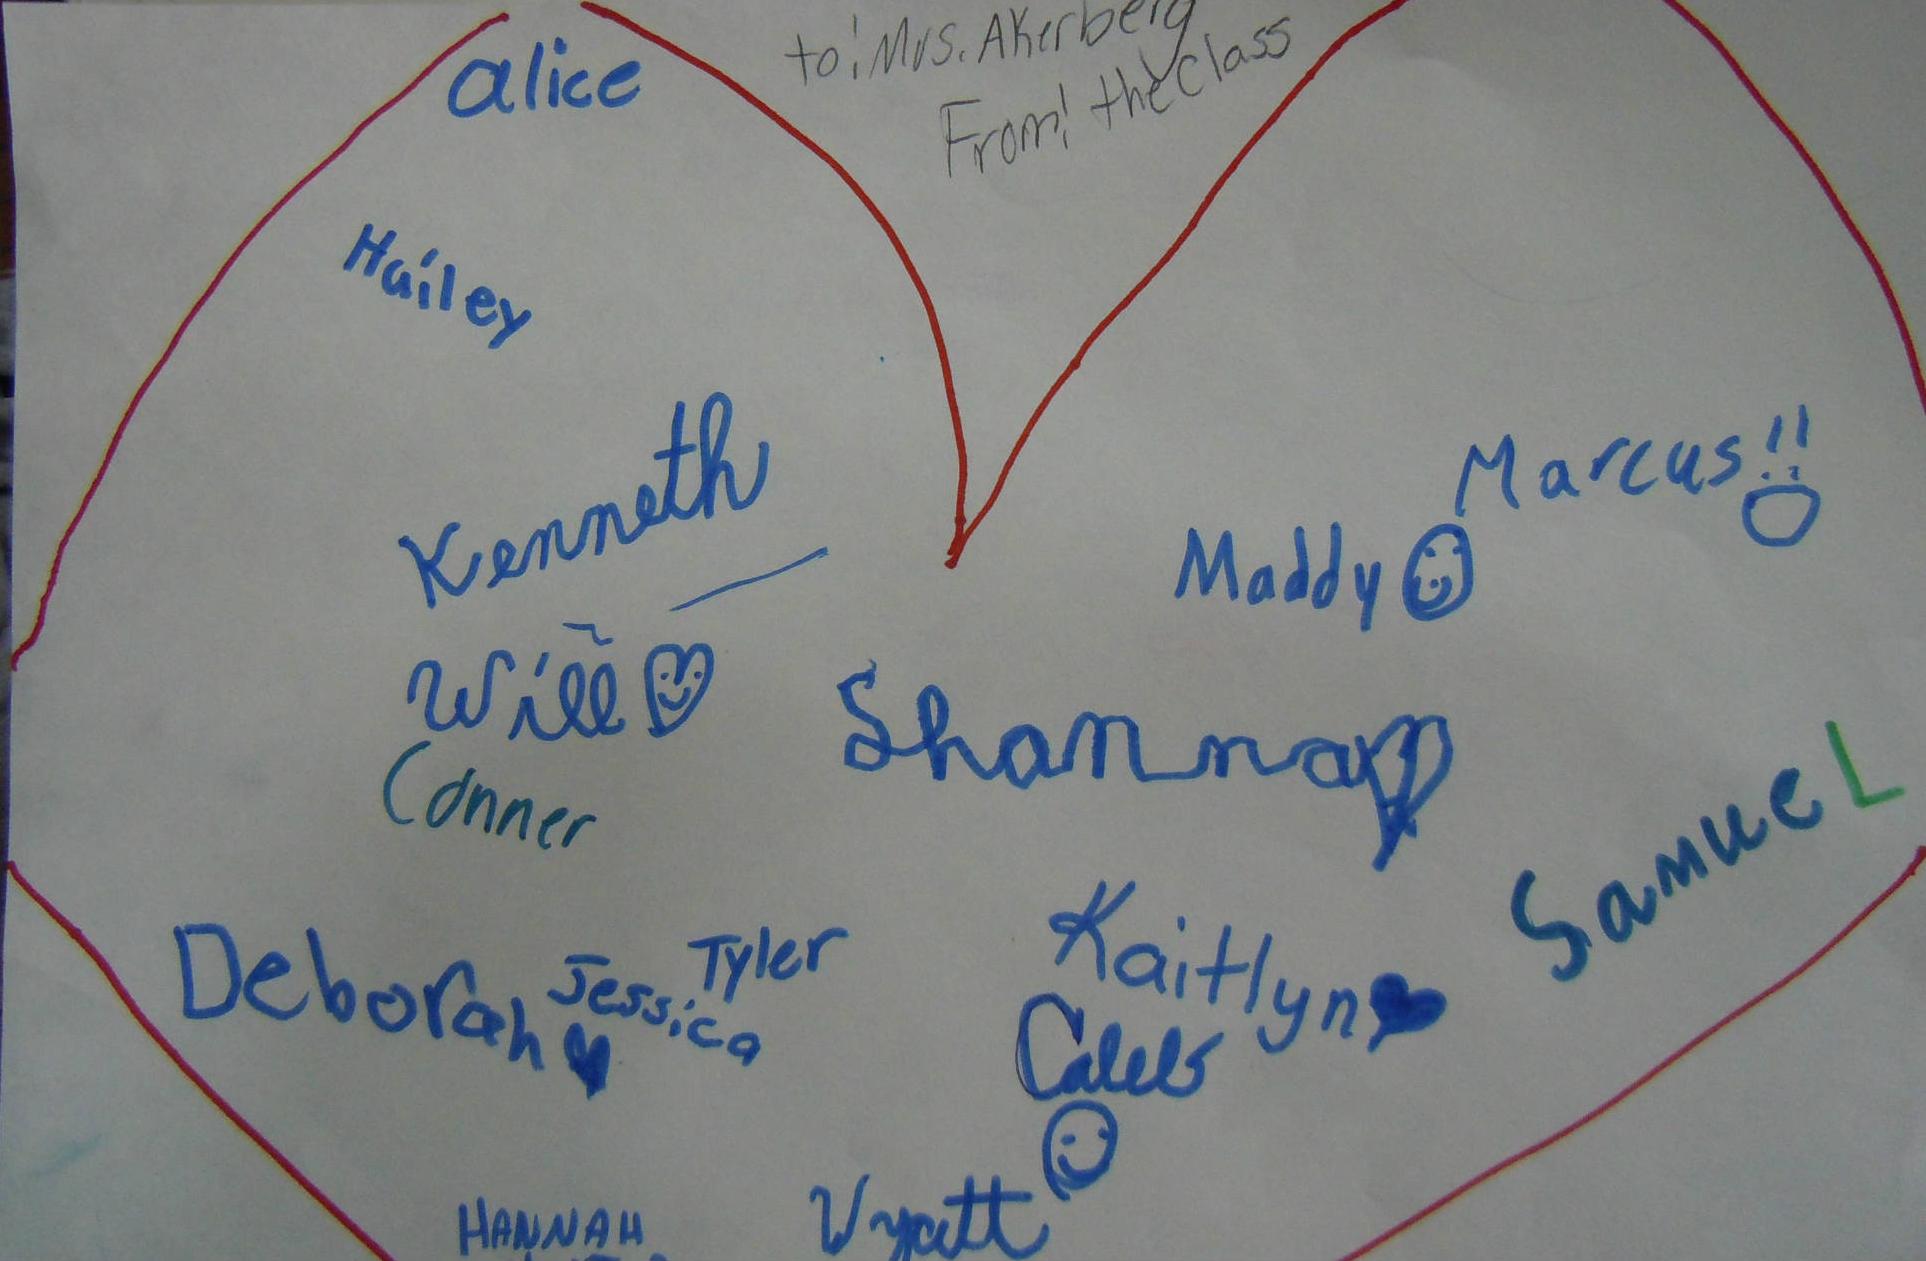 to: Mrs. Akerberg
From: the Class
alice
Hailey
Kenneth
Marcus!!
Maddy
Will
Shannan
Conner
Samuel
Deborah
Jessica
Tyler
Kaitlyn
Caleb
Wyatt
HANNAH